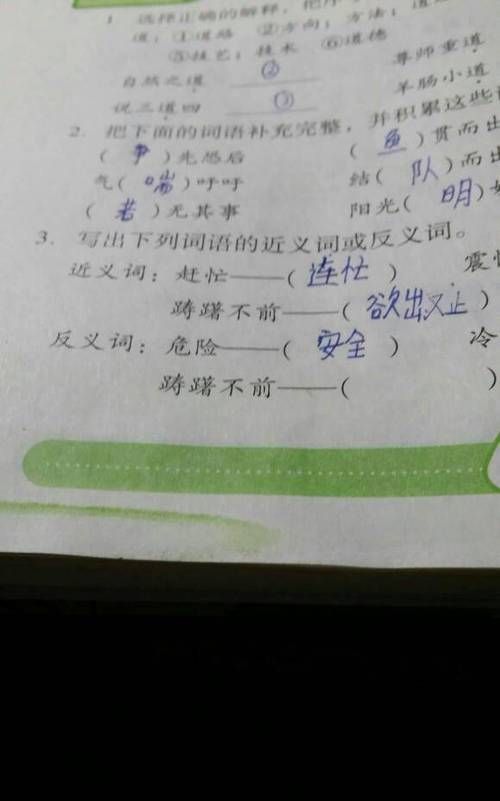 1. 选择正确的解释，把序
道：①道路 ②方向；方法；道
⑤技艺；技术 ⑥道德
自然之道 ② 尊师重道
说三道四 ③ 羊肠小道
2. 把下面的词语补充完整，并积累这些
（争）先恐后 （鱼）贯而出
气（喘）吁吁 结（队）而出
（若）无其事 阳光（明）
3. 写出下列词语的近义词或反义词。
近义词：赶忙——（连忙）
踌躇不前——（欲出又止）
反义词：危险——（安全） 冷
踌躇不前——（ ）